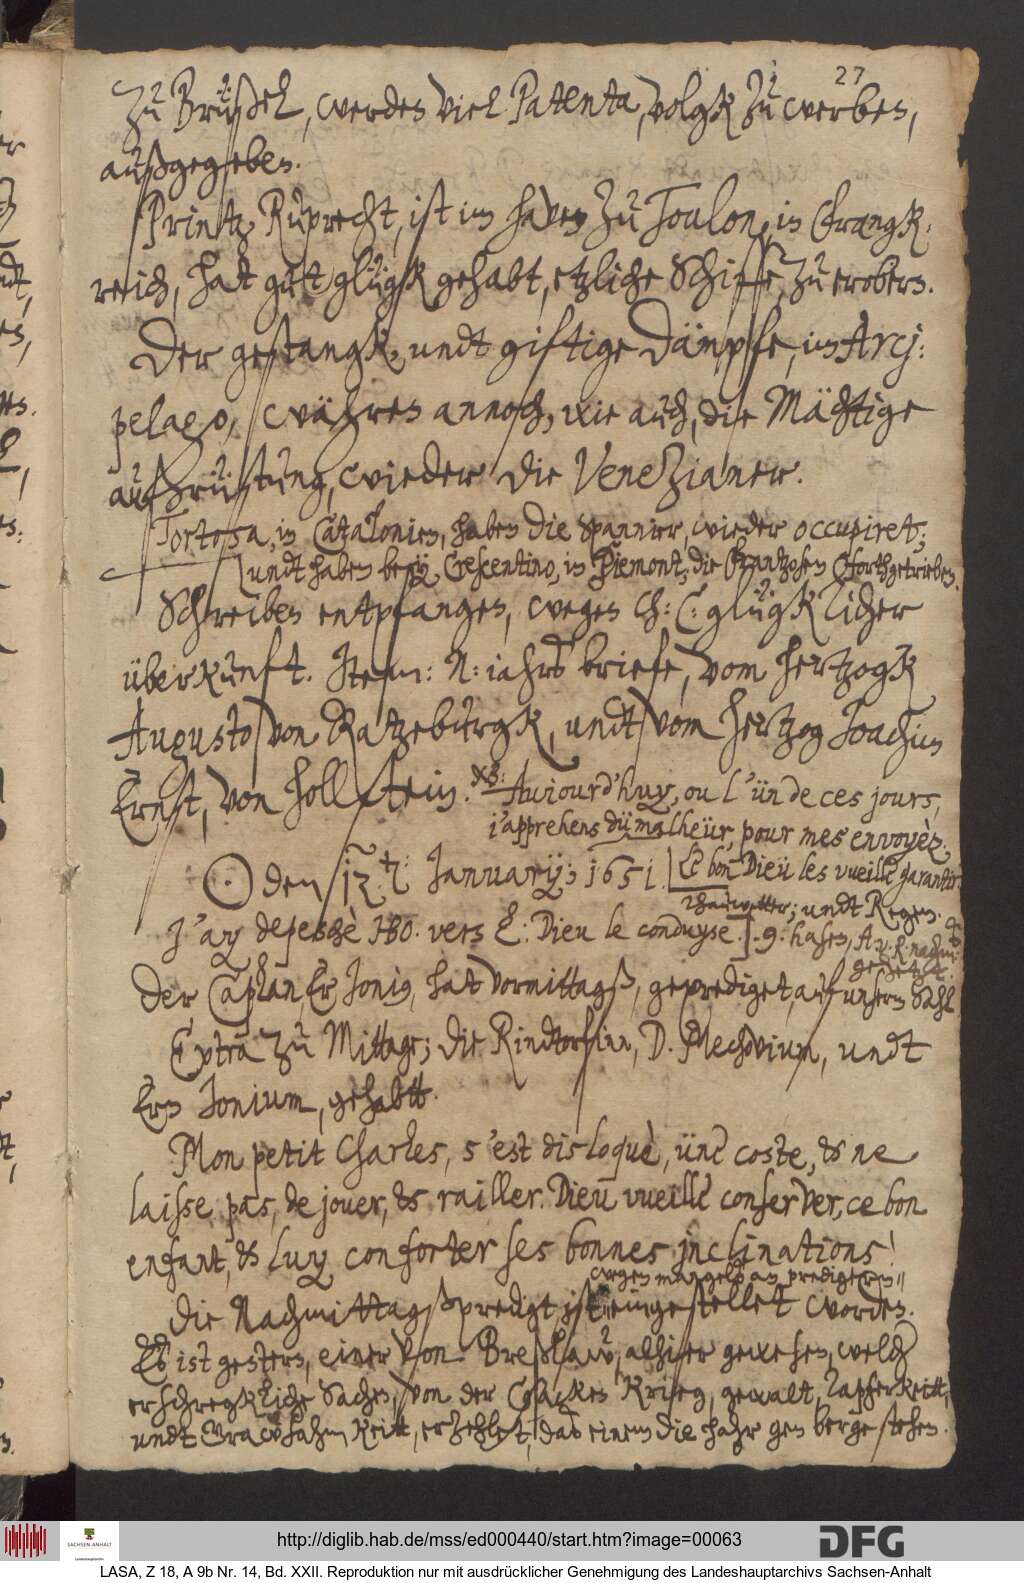 27
Zu Brüßel, werden viel Patenta, volgk zu werben,
außgegeben.
Printz Ruprecht, ist im haven zu Toulon, in Frangk-
reich, hat gut glügk gehabt, etzliche Schiffe, zu erobern.
Der gestangk, undt giftige Dämpfe, im Arcj:
pelago, währen annoch, wie auch, die Mächtige
außrüstung, wieder die Venezianer.
Tortosa, in Catalonien, haben die Spannier, wieder occupiret;
undt haben bey Crescentino, in Piemont, die Frantzosen forthgetrieben.
Schreiben entpfangen, wegen glügklicher
überkunft. Item: N: iahrs briefe, vom Hertzogk
Augusto von Ratzeburgk, undt vom Hertzog Joachim
Ernst, von Hollstein. Aujourd'huy, ou l'ün de ces jours,
j'apprehens dü malheür, pour mes envoyèz.
Le bon Dieü les vueille garantir.
☉ den 12.t: Januarij; 1651.
Thauwetter; undt Regen.
J'ay depeschè vers Dieu le conduyse. 9. hasen,
gehetzt.
Der Caplan, Er Jonig, hat vormittagß, geprediget, auf unserm Sahl
Extra zu Mittage; die Rindtorfinn, D. Mechovium, undt
Ern Jonium, gehabtt.
Mon petit Charles, s'est disloquè, üne coste, & ne
laisse pas, de jouer, & railler. Dieu vueille conserver, ce bon
enfant, & luy conforter ses bonnes jnclinations!
wegen mangelß an predigeren
Die Nachmittagßpredigt, ist eingestellet worden.
Es ist gestern, einer von Breßlaw, alhier gewesen, welcher
erschregkliche Sachen, von der Cosacken Krieg, gewalt, Tapferkeitt,
undt Grausahmkeitt, erzehlet, das einem die hahr gen berge stehen.
http://diglib.hab.de/mss/ed000440/start.htm?image=00063
SACHSEN-ANHALT
DFG
LASA, Z 18, A 9b Nr. 14, Bd. XXII. Reproduktion nur mit ausdrücklicher Genehmigung des Landeshauptarchivs Sachsen-Anhalt